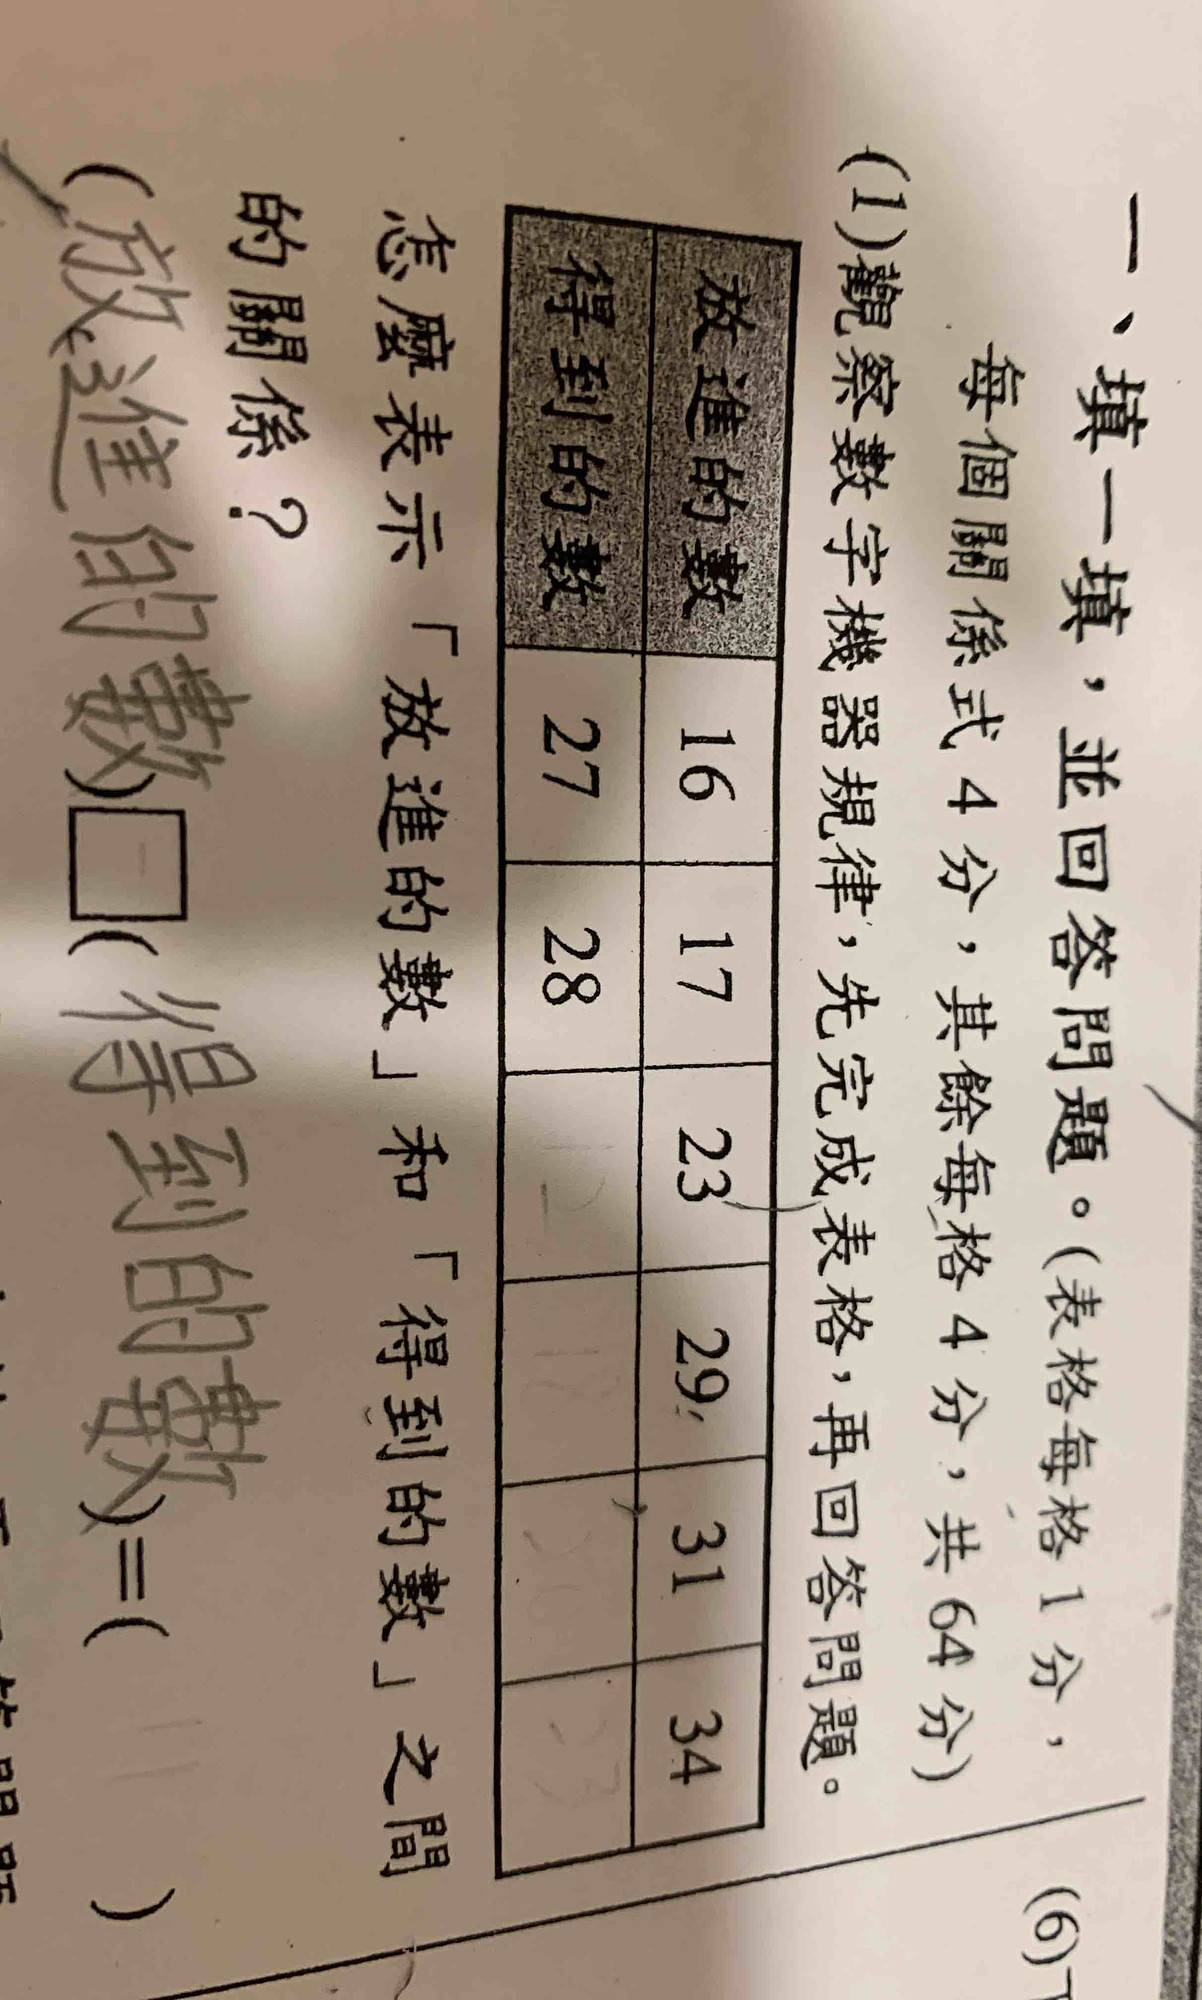 一、填一填，並回答問題。(表格每格1分，
每個關係式4分，其餘每格4分，共64分)
(1)觀察數字機器規律，先完成表格，再回答問題。
放進的數 16 17 23 29 31 34
得到的數 27 28
怎麼表示「放進的數」和「得到的數」之間
的關係？
(放進的數)□(得到的數)=( )
(6)